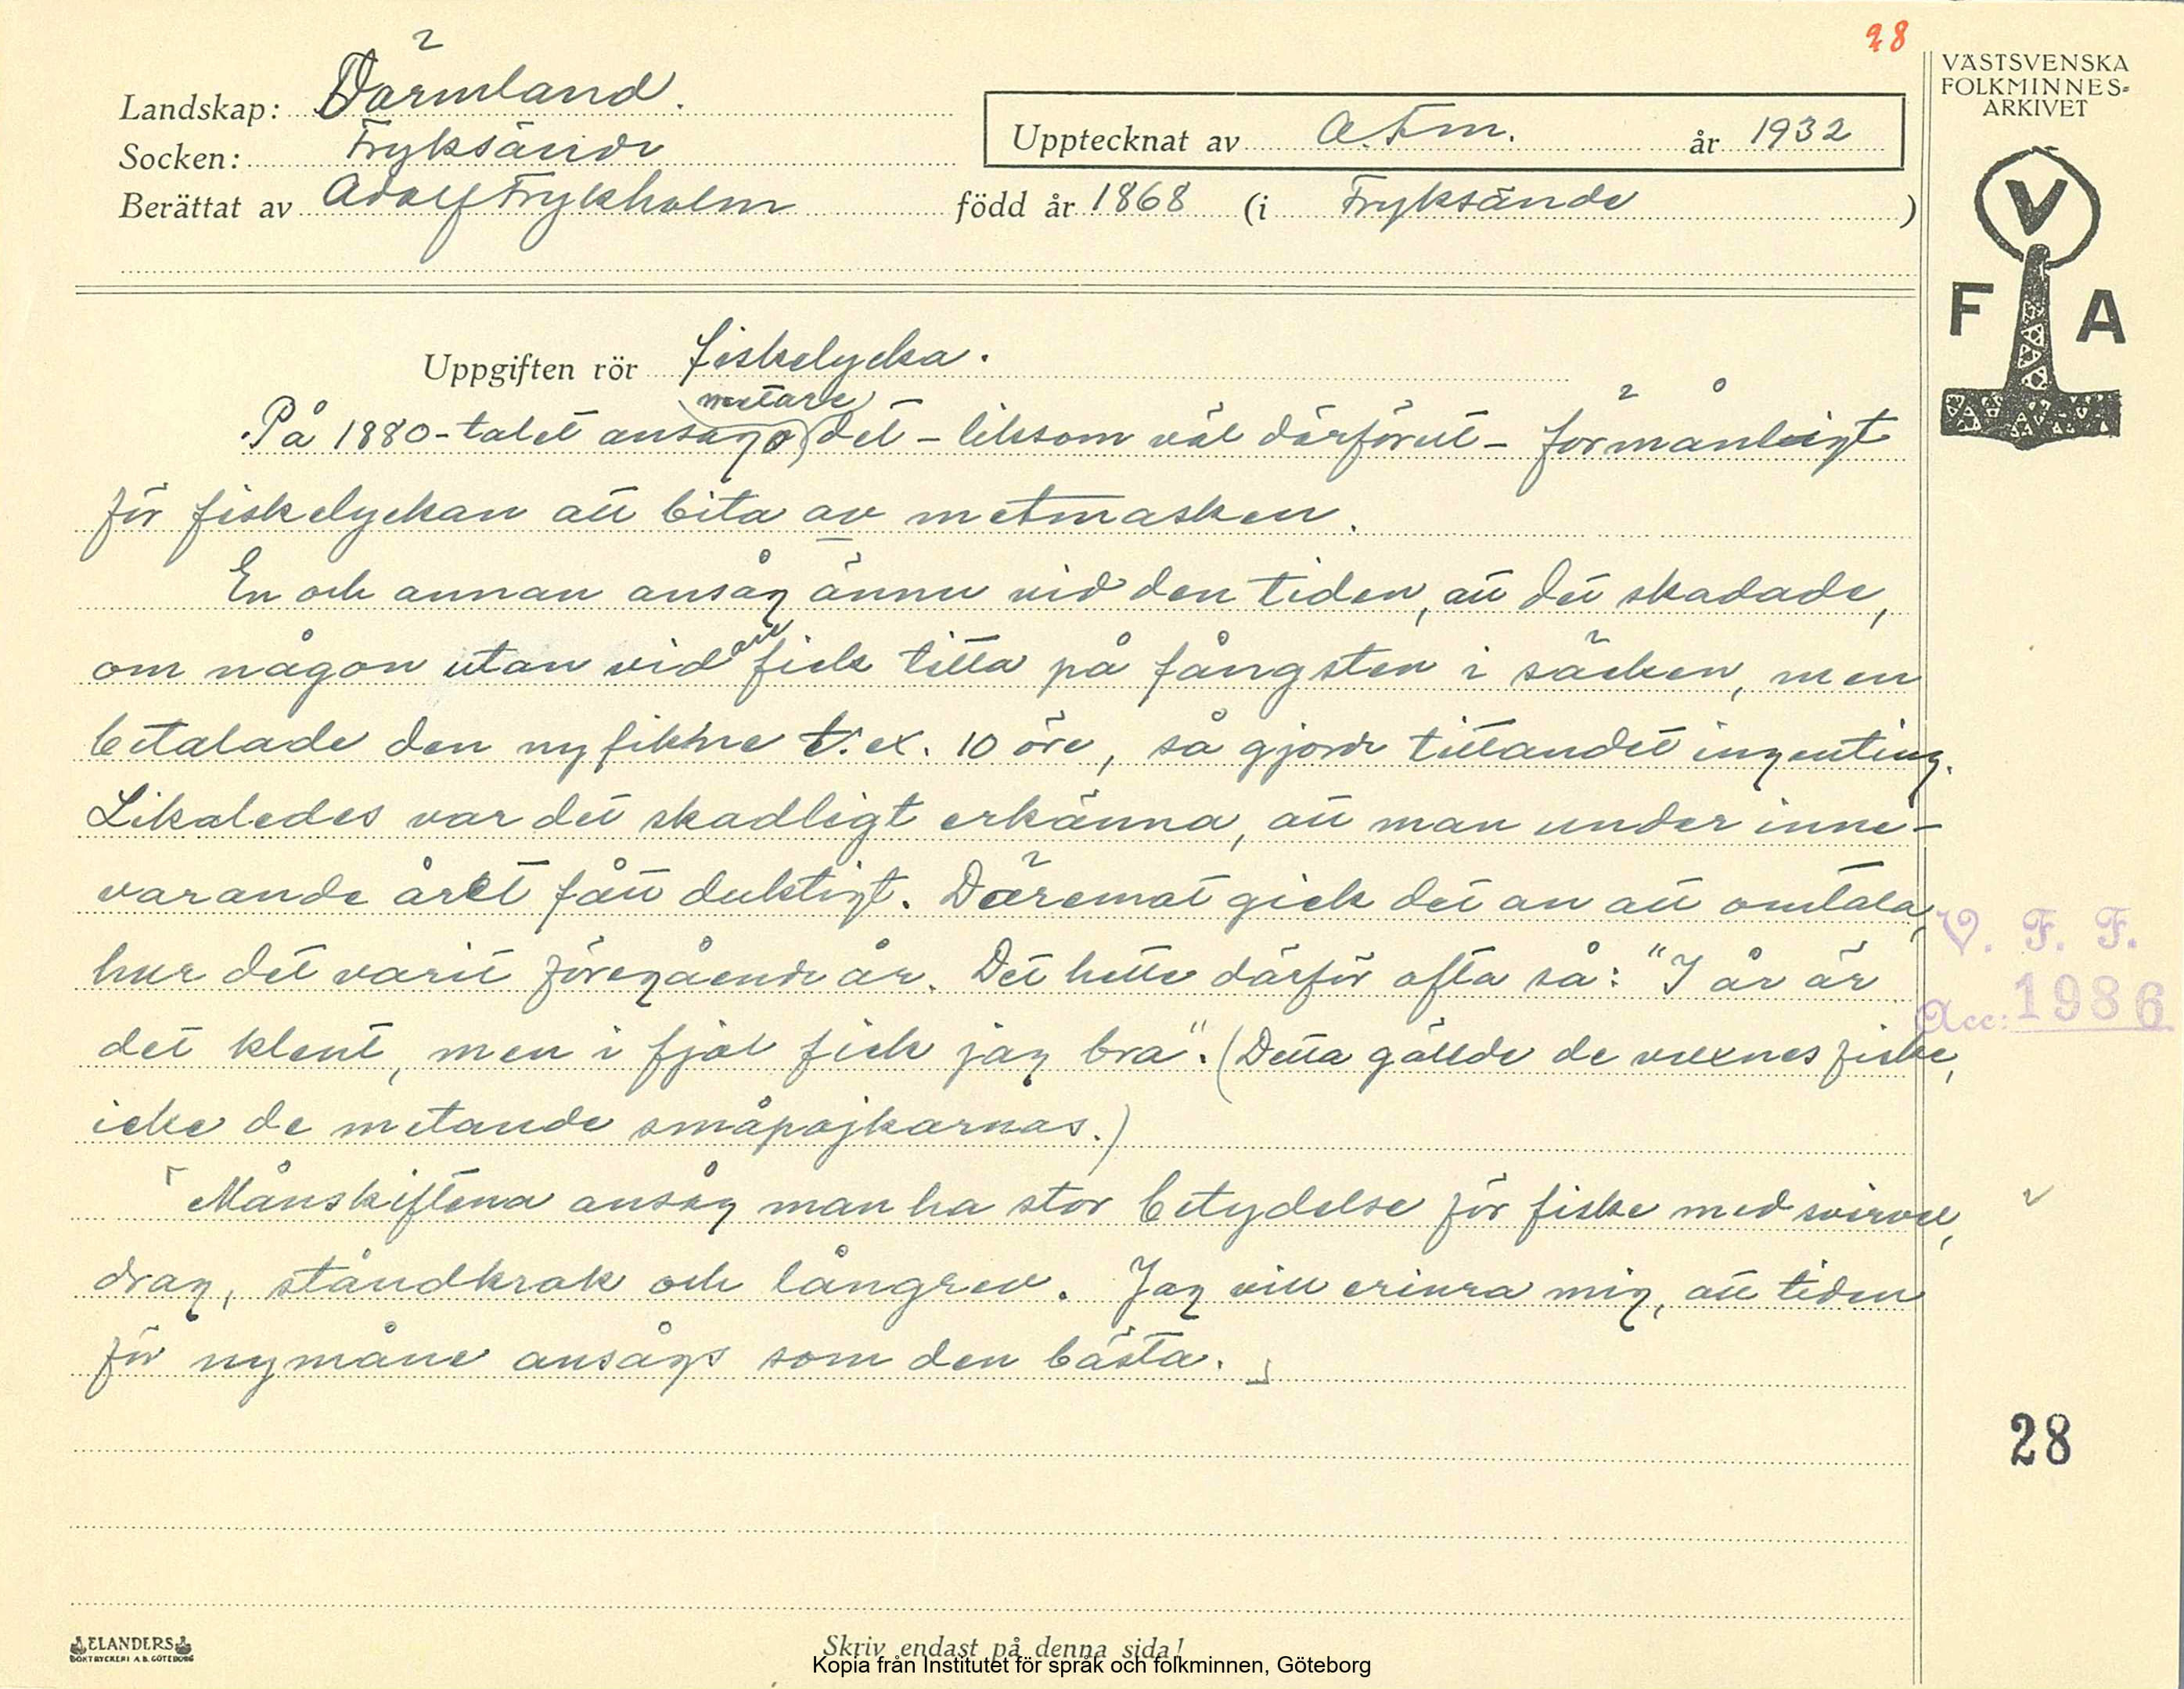 28
VÄSTSVENSKA
FOLKMINNES-
ARKIVET
Landskap: Värmland.
Socken: Fryksände
Upptecknat av A. Fm. år 1932
Berättat av Adolf Frykholm född år 1868 (i Fryksände )
V
F A
Uppgiften rör fiskelycka.
metare
På 1880-talet ansågo det – liksom väl därförut – förmånligt
för fiskelyckan att bita av metmasken.
En och annan ansåg ännu vid den tiden, att det skadade,
om någon utan vidare fick titta på fångsten i säcken, men
betalade den nyfikne t. ex. 10 öre, så gjorde tittandet ingenting.
Likaledes var det skadligt erkänna, att man under inne-
varande året fått duktigt. Däremot gick det an att omtala,
hur det varit föregående år. Det hette därför ofta så: "I år är
det klent, men i fjol fick jag bra". (Detta gällde de vuxnes fiske,
icke de metande småpojkarnas.)
Månskiftena ansåg man ha stor betydelse för fiske med svirvel,
drag, ståndkrok och långrev. Jag vill erinra mig, att tiden
för nymåne ansågs som den bästa.
V. F. F.
Acc: 1986
28
ELANDERS
BOKTRYCKERI A.B. GÖTEBORG
Skriv endast på denna sida!
Kopia från Institutet för språk och folkminnen, Göteborg